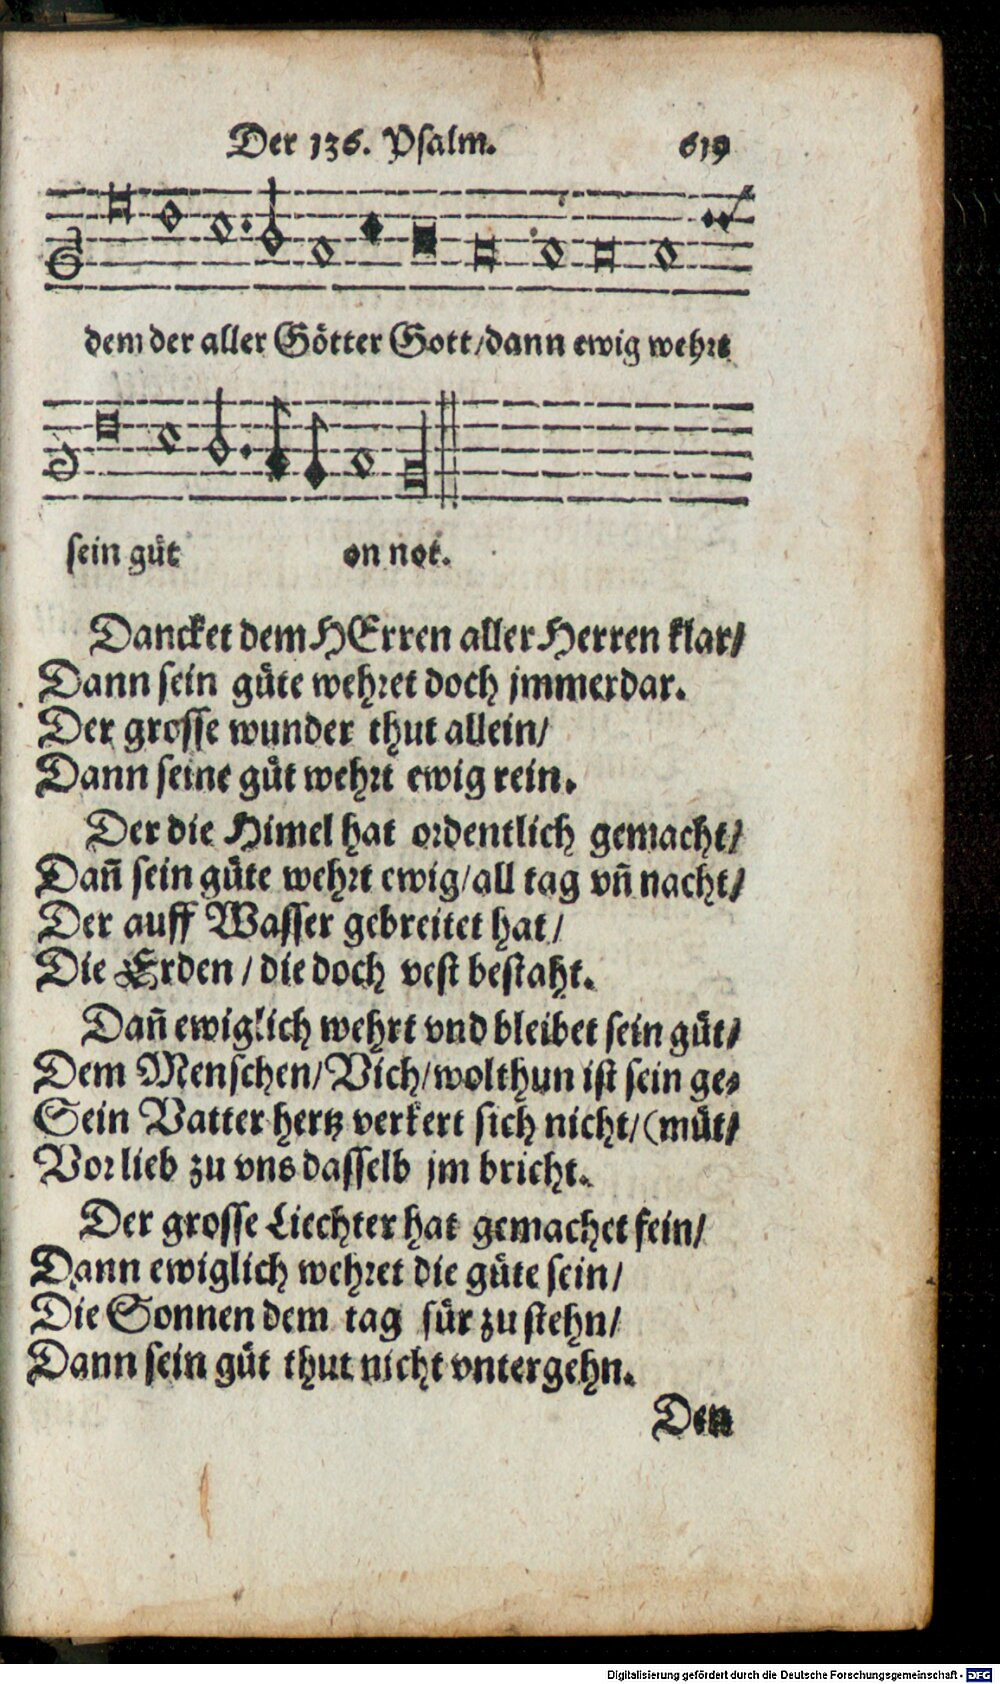 Der 136. Psalm. 619
dem der aller Götter Gott/dann ewig wehrt
sein güt on not.
Dancket dem HErren aller Herren klar/
Dann sein güte wehret doch jmmerdar.
Der grosse wunder thut allein/
Dann seine güt wehrt ewig rein.
Der die Himel hat ordentlich gemacht/
Dañ sein güte wehrt ewig/all tag vñ nacht/
Der auff Wasser gebreitet hat/
Die Erden/die doch vest bestaht.
Dañ ewiglich wehrt vnd bleibet sein güt/
Dem Menschen/Vich/wolthun ist sein ge-
Sein Vatter hertz verkert sich nicht/(müt/
Vor lieb zu vns dasselb jm bricht.
Der grosse Liechter hat gemachet fein/
Dann ewiglich wehret die güte sein/
Die Sonnen dem tag für zu stehn/
Dann sein güt thut nicht vntergehn.
Den
Digitalisierung gefördert durch die Deutsche Forschungsgemeinschaft - DFG